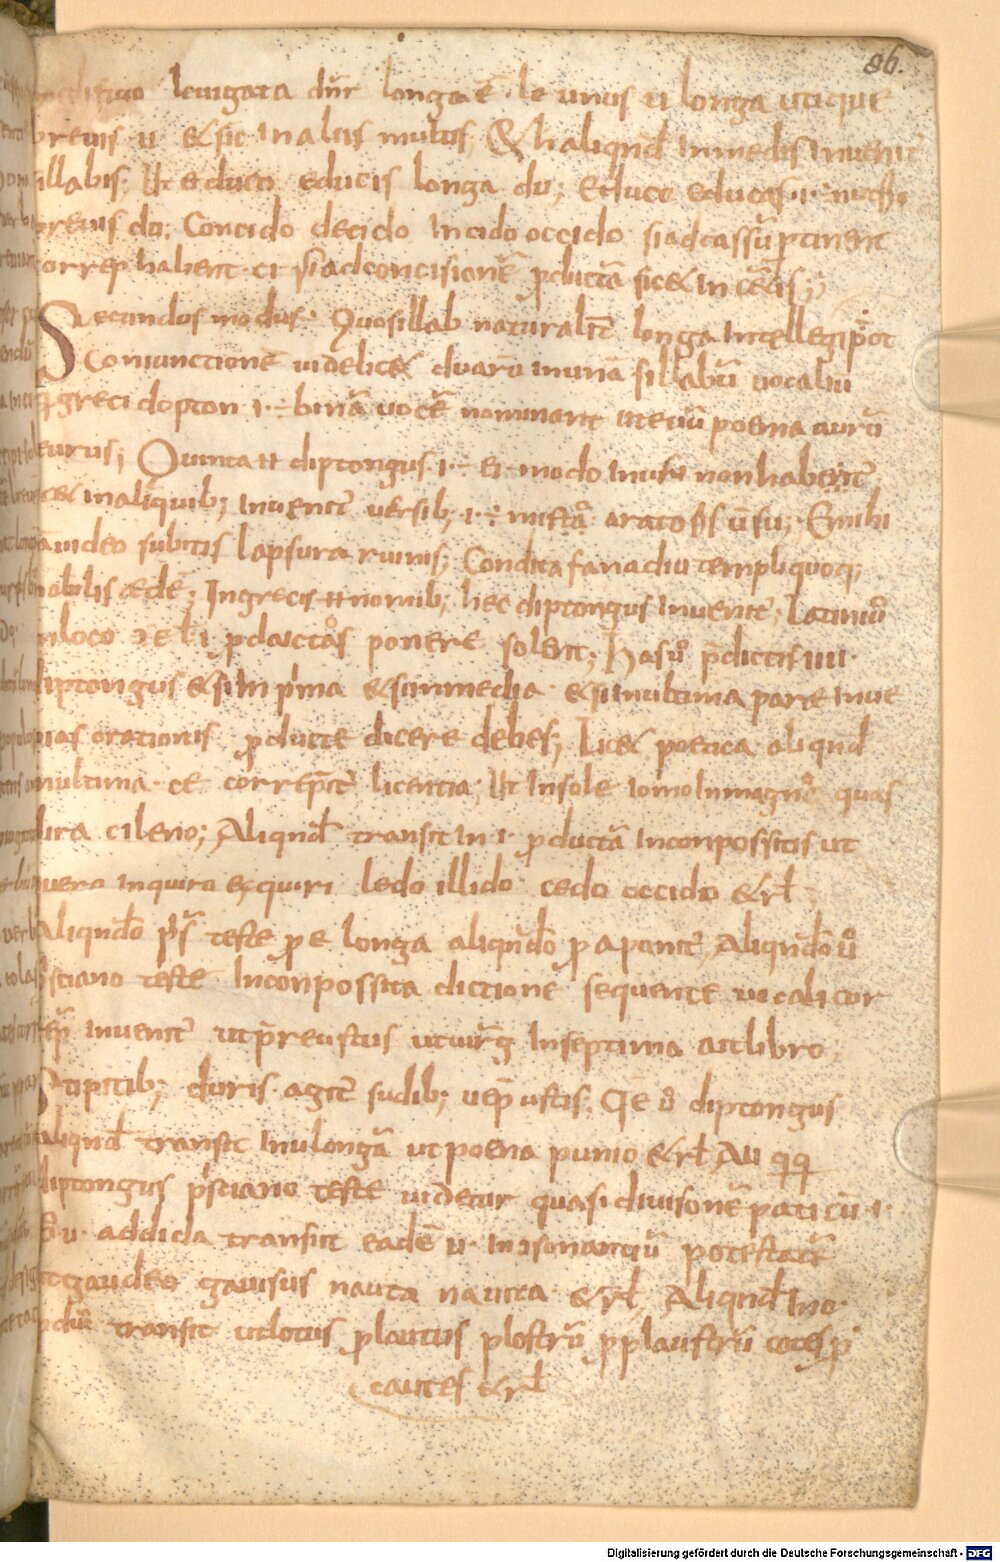 86.
leuigata dũr longa ẽ · le unus u longa utique
breuis u &sic In aliis multis, & h aliqnđ In mediis Inuenit̃
sillabis; Ut ẽ educo educis longa du; Educo educas · ł · nutrio
breuis du; Concido decido Incido occido si ad cassũ ptinent
corrept̃ habent · ci · si ad concisionẽ pductã sic & In cẽtis;
Secundus modus · Quo sillab naturalit̃ longa Intellegi pot
Coniunctione uidelic& duarũ In unã sillabã uocaliũ
greci dopton · ł · binã uocẽ nominant ut euũ poena aurũ
eurus; Quinta u diptongus · ł · ei · modo In usu non habet̃
lic& In aliquib; Inuenit̃ uersib; · ł · In istã aratoris uersu; Ei mihi
uideo subitis lapsura ruinis; Condita fana diu templi quoq;
nobilis ędẽ; In grecis u nomib; hec diptongus Inuenit̃; Latini ů
In loco ei · e ł i · pductas ponere solent; Has ů p̃dictis IIII ·
diptongus & si In pima & si In media · & si In ultima parte Inue
nias orationis pducte dicere debes; Lic& poetica aliqnđ
In ultima · ae corripit̃ licentia; Ut Insole Iomo In magno quas
lira cileno; Aliqnđ transit In I · pductã In conpossitis ut
quero Inquiro exquiri ledo illido cedo occido &rł
Aliqnđo pisc teste p e longa aliqnđo p a ponit̃, Aliqnđo ů
prisciano teste In conpossita dictione sequente uocali cor
rept̃ Inuenit̃ ut p̃reustus ut uirg In septima aut libro
Stipitib; duris agit̃ sudib; uep̃ ustis; Oe ů diptongus
aliqnđ transit In u longã ut poena punio &rł Au qq
diptongus pisciano teste uidetur quasi diuisonẽ pati cũ · I ·
ů · u · addida transit eadẽ u · In 9sonantiũ potestatẽ
ut gaudeo gauisus nauta nauita &rł, Aliqnđ In o ·
ductũ transit ut lotus p lautus plostrũ p plaustrũ cotes p
cautes &rł
Digitalisierung gefördert durch die Deutsche Forschungsgemeinschaft - DFG